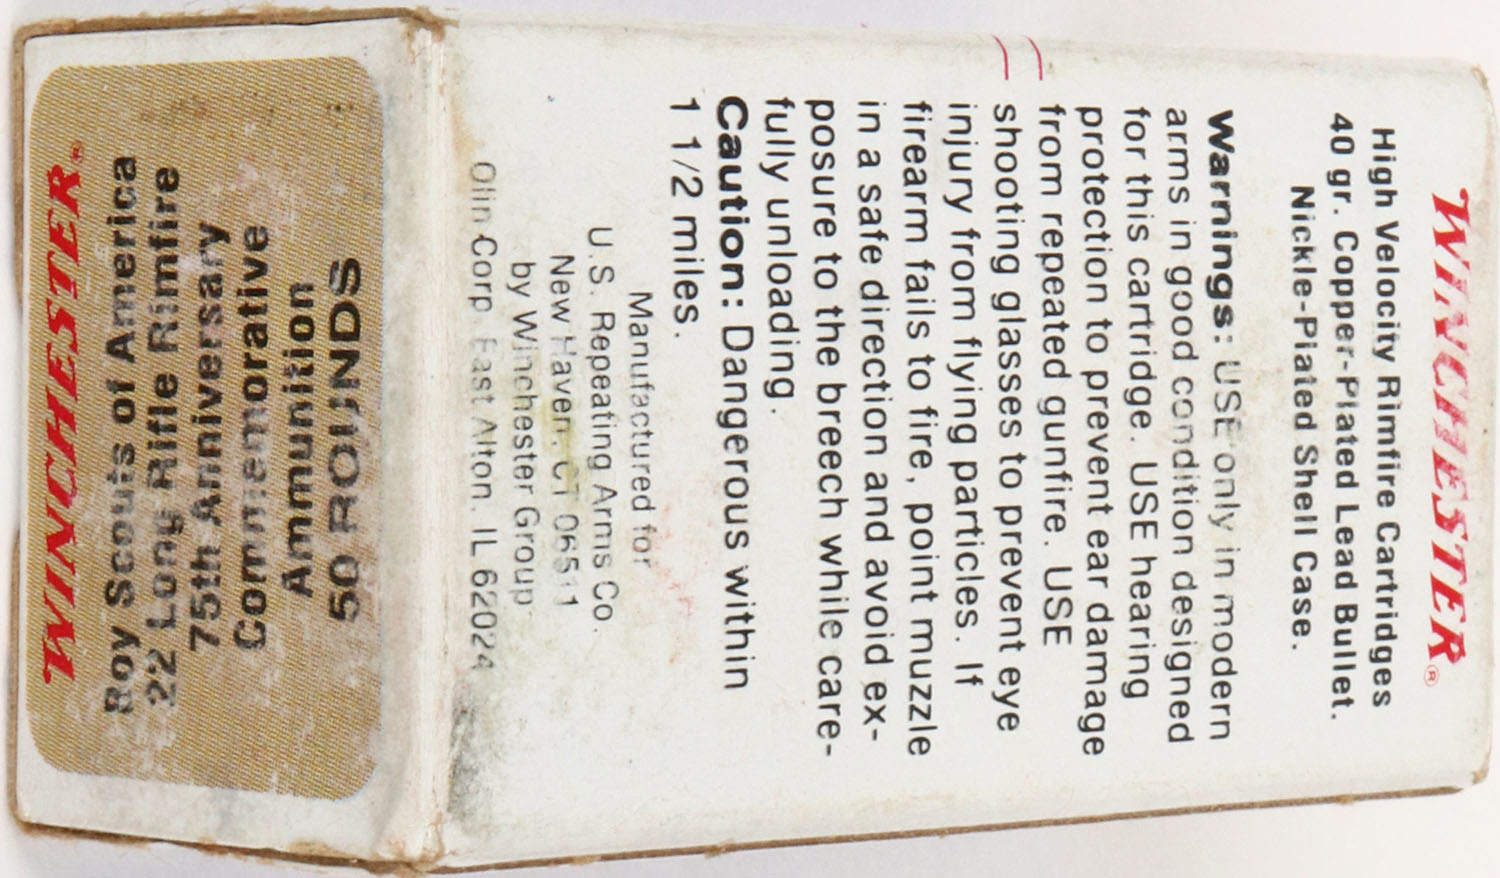 WINCHESTER®
High Velocity Rimfire Cartridges
40 gr. Copper-Plated Lead Bullet.
Nickle-Plated Shell Case.
Warnings: USE only in modern
arms in good condition designed
for this cartridge. USE hearing
protection to prevent ear damage
from repeated gunfire. USE
shooting glasses to prevent eye
injury from flying particles. If
firearm fails to fire, point muzzle
in a safe direction and avoid ex-
posure to the breech while care-
fully unloading.
Caution: Dangerous within
1 1/2 miles.
Manufactured for
U.S. Repeating Arms Co.
New Haven, CT 06511
by Winchester Group
Olin Corp. East Alton, IL 62024
WINCHESTER®
Boy Scouts of America
22 Long Rifle Rimfire
75th Anniversary
Commemorative
Ammunition
50 ROUNDS